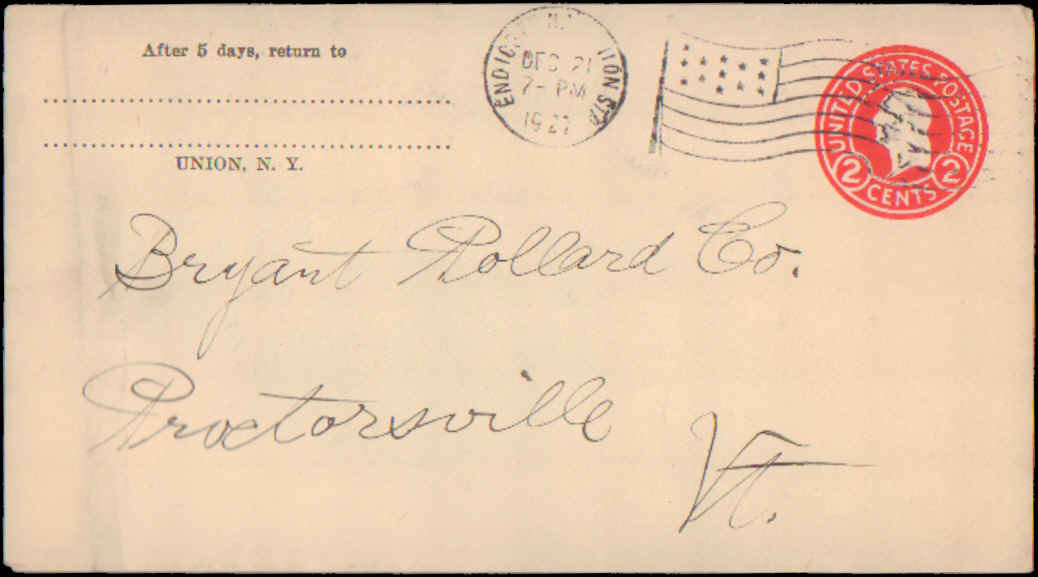 After 5 days, return to
UNION, N. Y.
DEC 21
7- PM
1927
UNITED STATES POSTAGE
2 CENTS 2
Bryant Pollard Co.
Proctorsville
Vt.